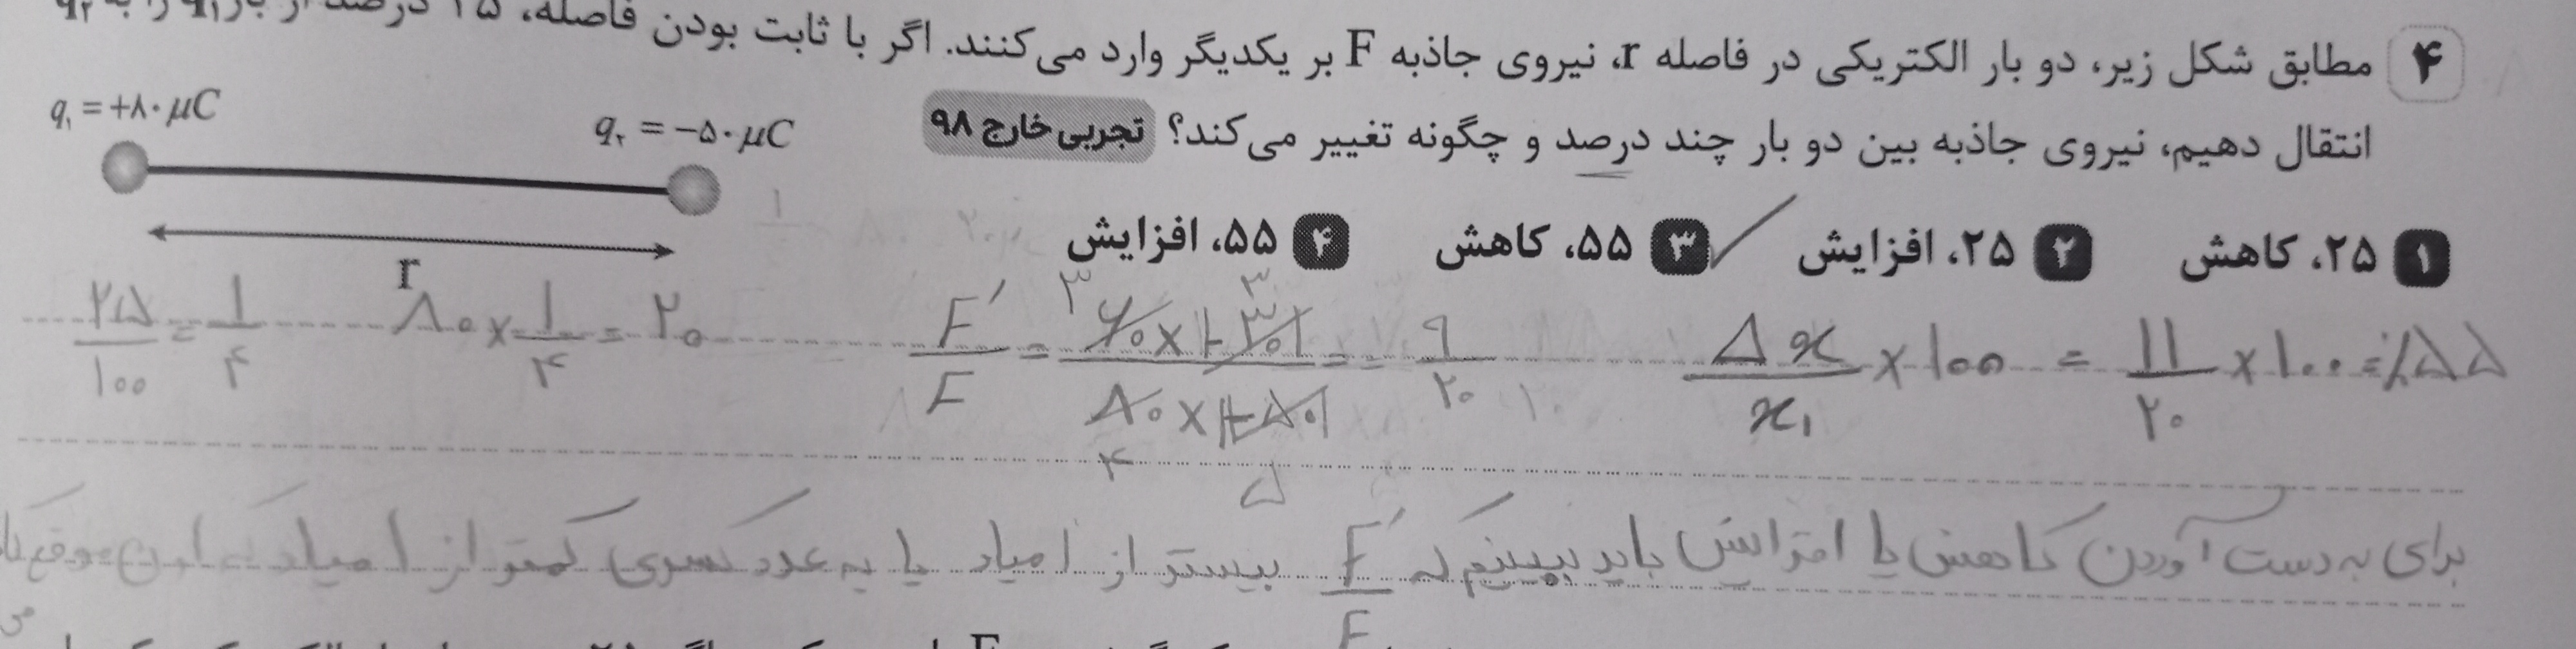 ۴ مطابق شکل زیر، دو بار الکتریکی در فاصله r، نیروی جاذبه F بر یکدیگر وارد می‌کنند. اگر با ثابت بودن فاصله، ۲۵ درصد از بار q₁ را به q₂
انتقال دهیم، نیروی جاذبه بین دو بار چند درصد و چگونه تغییر می‌کند؟ تجربی خارج ۹۸
q₁ = +۸۰ μC
q₂ = −۵۰ μC
r
۱ ۲۵، کاهش ۲ ۲۵، افزایش ۳ ۵۵، کاهش ۴ ۵۵، افزایش
۲۵/۱۰۰ = ۱/۴ ۸۰ × ۱/۴ = ۲۰ F′/F = ۶۰×|-۳۰|/۸۰×|-۵۰| = ۹/۲۰ Δx/x₁ × ۱۰۰ = ۱۱/۲۰ × ۱۰۰ = ٪۵۵
۳ ۳
۴ ۵
برای به دست آوردن کاهش یا افزایش باید ببینیم که F′/F بیشتر از ۱ میاد یا یه عدد کسری کمتر از ۱ میاد